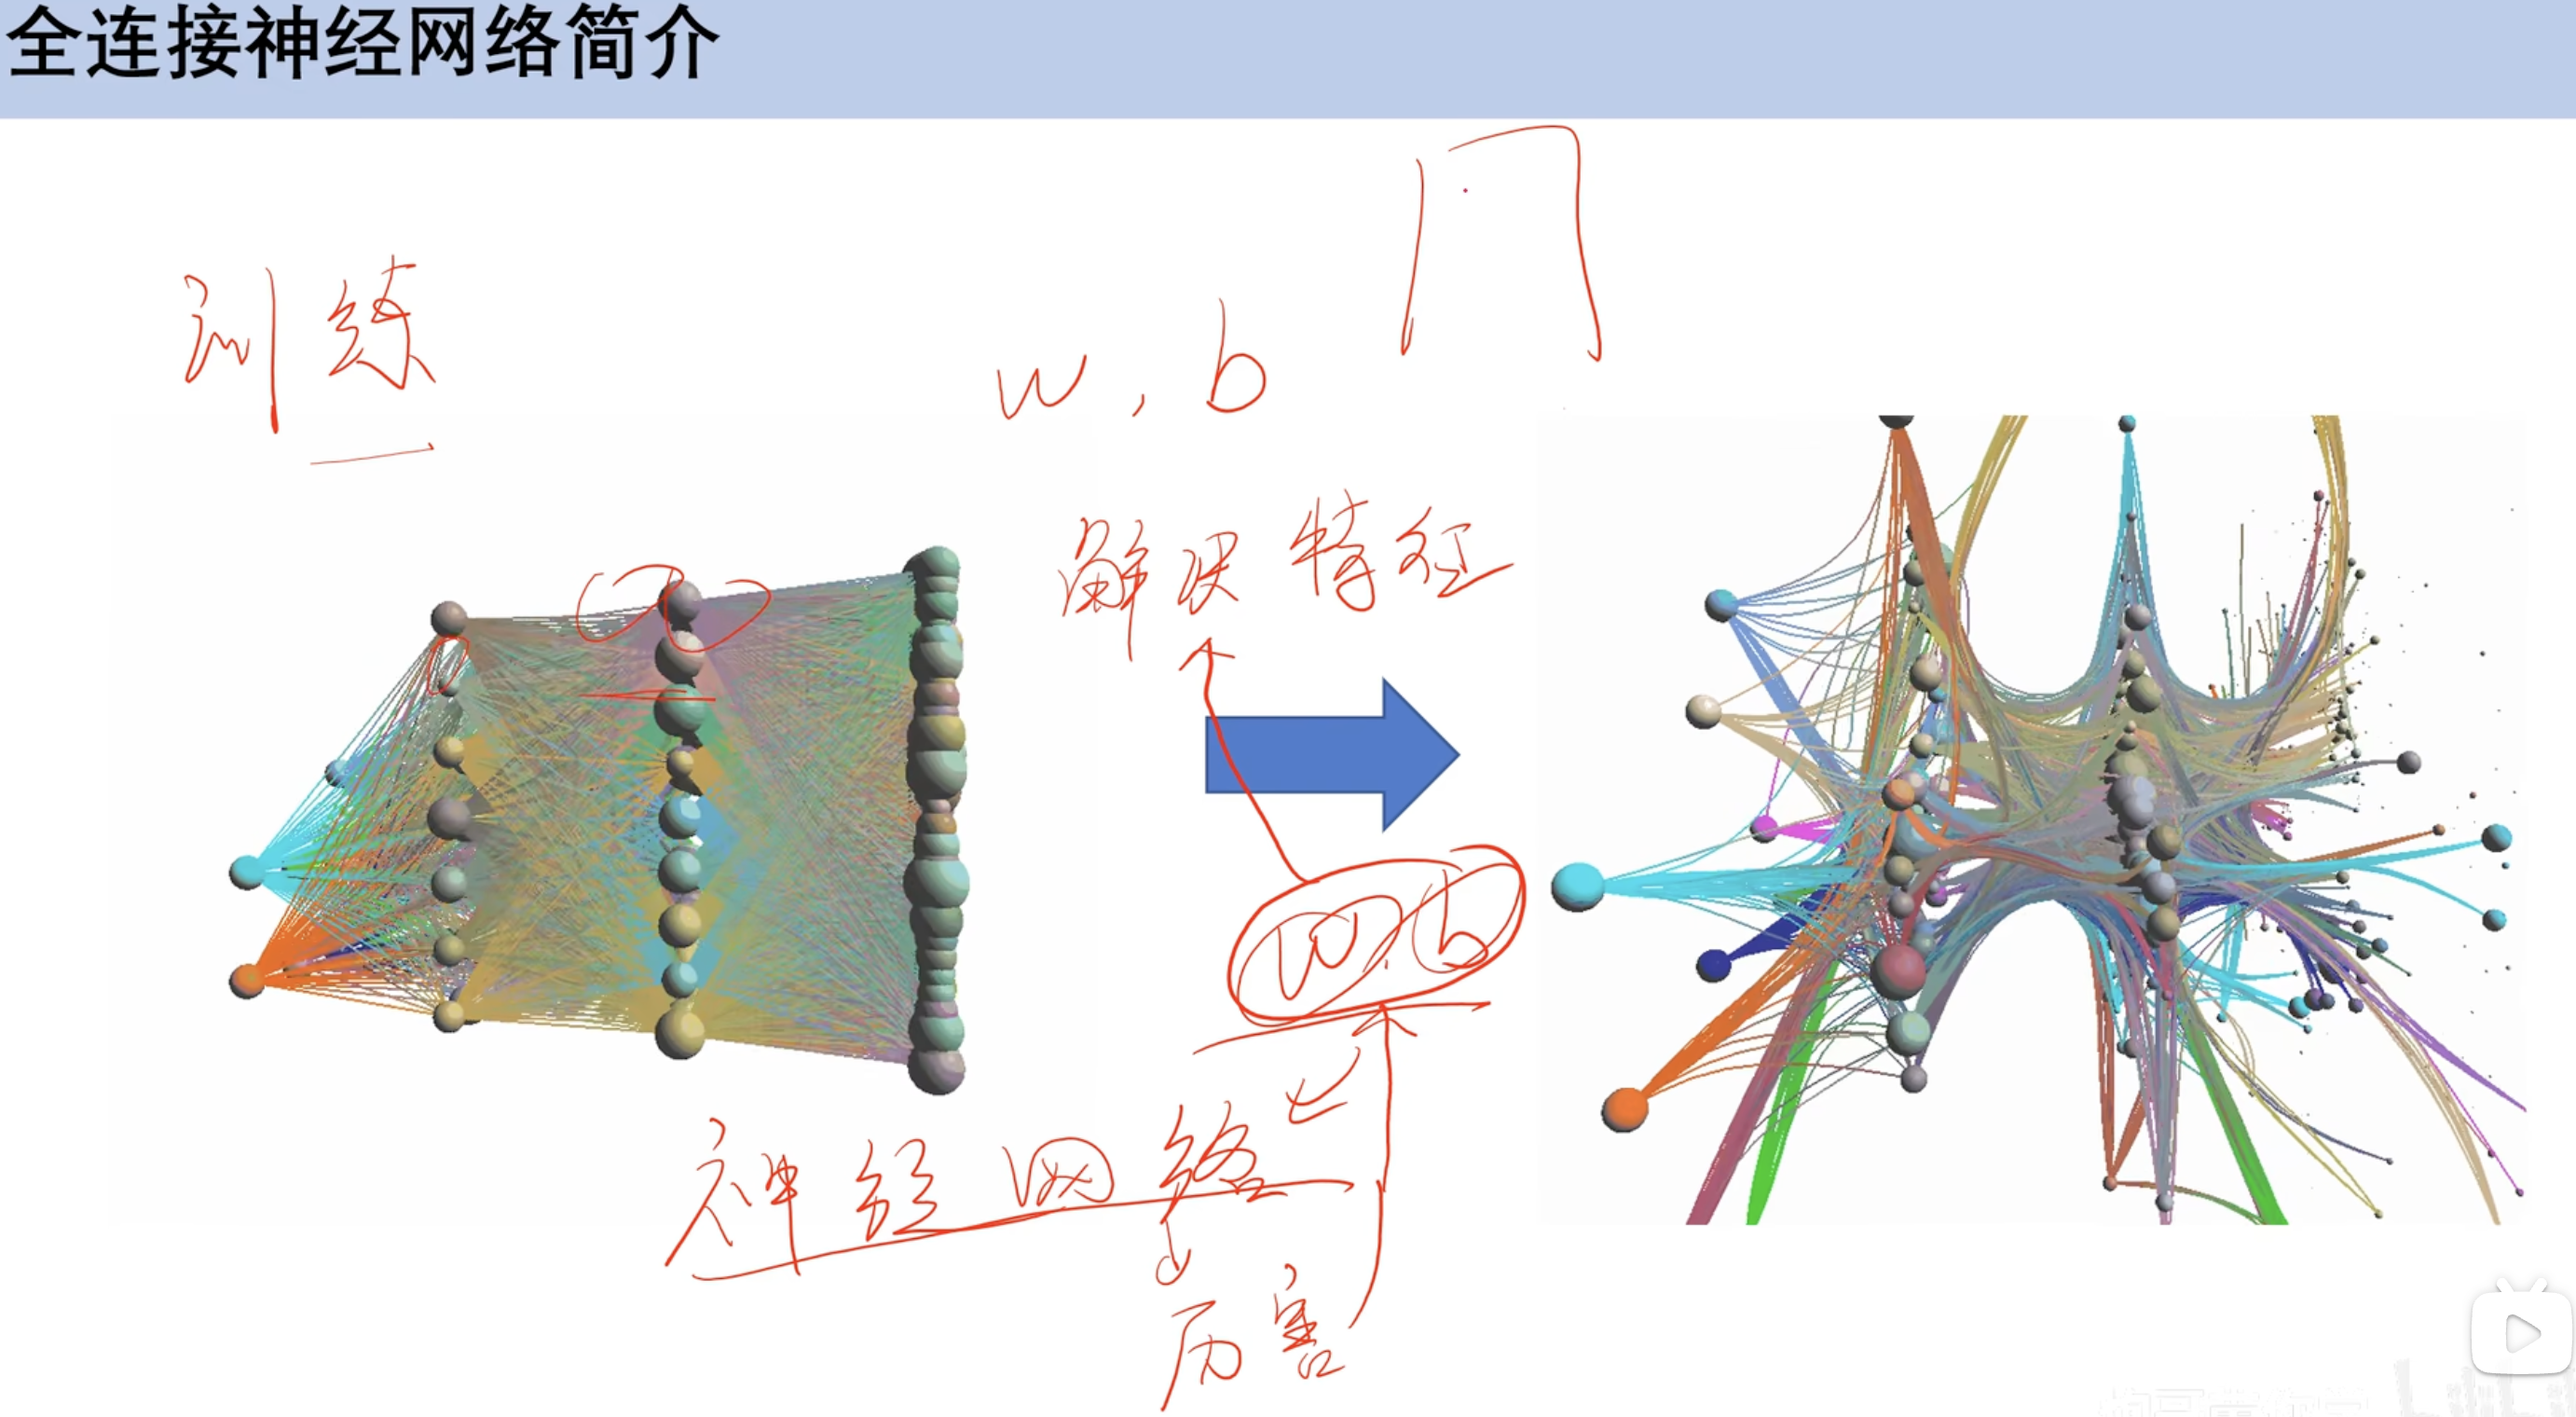 全连接神经网络简介
训练
w, b
解决特征
w, b
神经网络
厉害